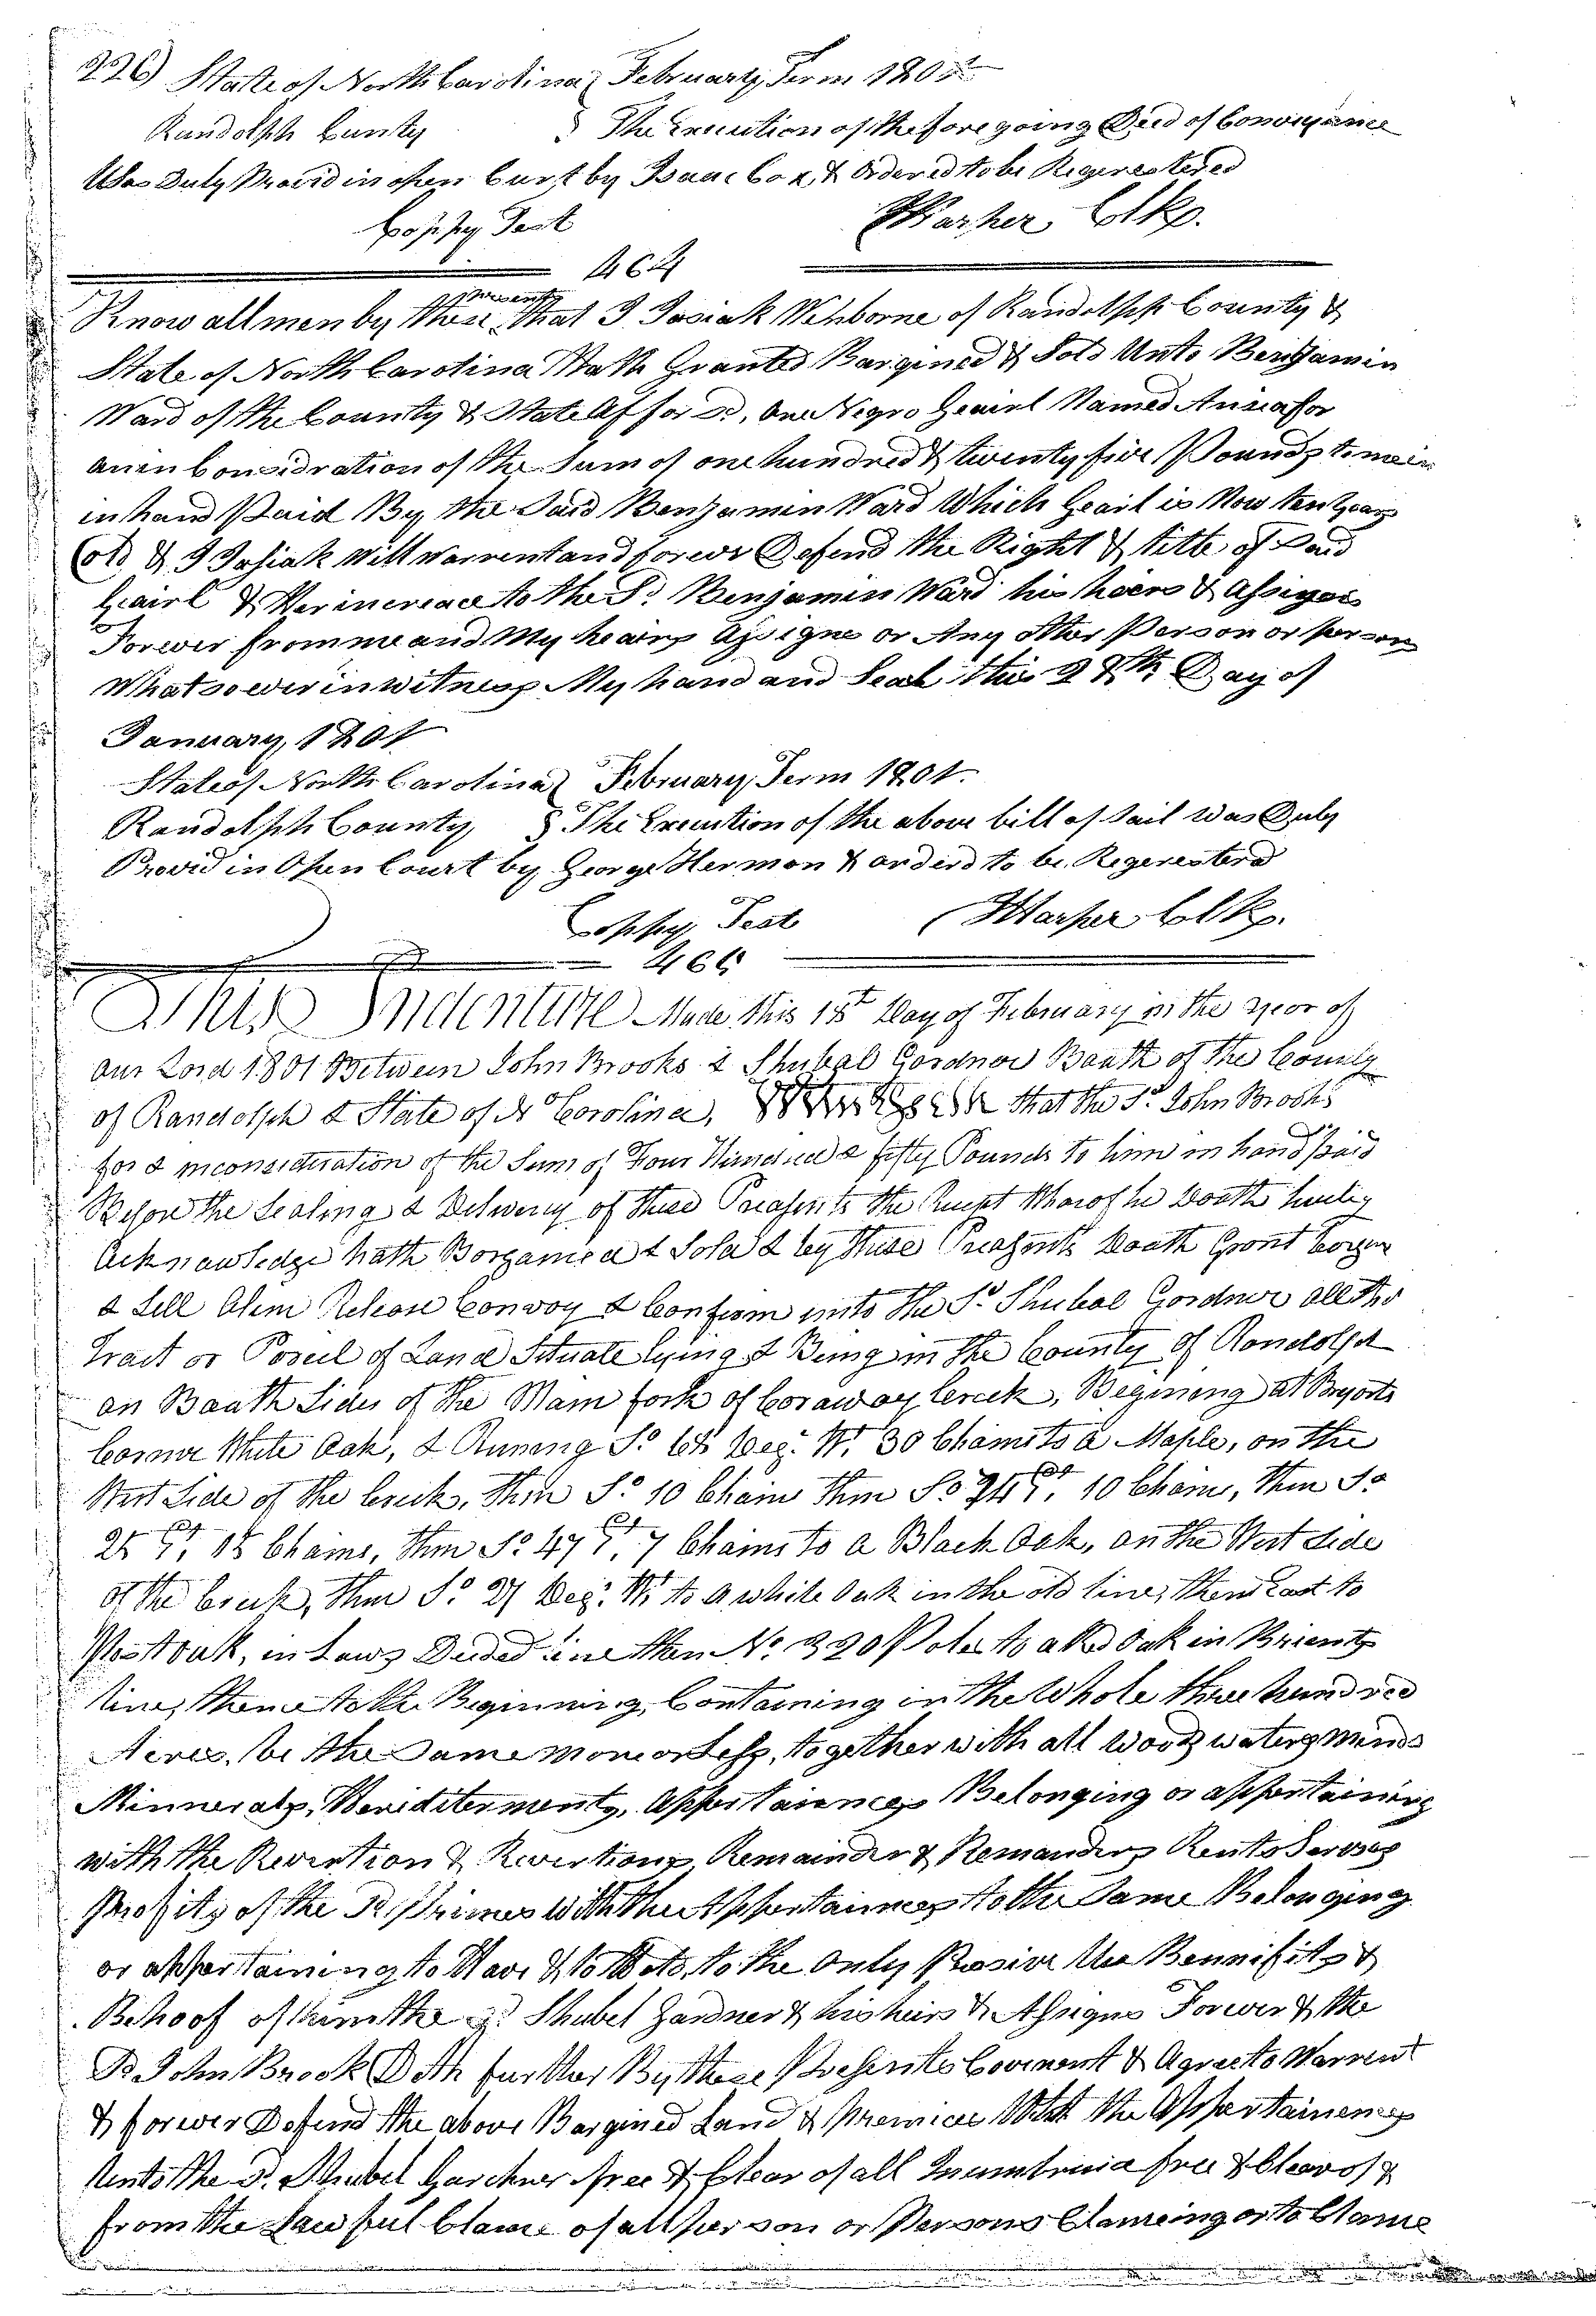 226) State of North Carolina } February Term 1801
Randolph Cunty } The Execution of the foregoing Deed of Convayance
Was Duly Proved in open Curt by Isaac Cox & Ordered to be Regerestered
Coppy Test Harper Clk
464
Know all men by these presents that I Josiah Welborne of Randolph County &
State of North Carolina Hath Granted Bargined & Sold Unto Benjamin
Ward of the County & State Afford, One Negro Geairl Named Anna for
an in Considration of the Sum of one hundred & twenty five Pounds to me in
in hand Paid By the Said Benjamin Ward Which Geairl is Now ten years
old & I Josiah Will Warrent and forever Defend the Right & title of Said
Geairl & Her increace to the Sd Benjamin Ward his heirs & Assigns
Forever from me and My heairs Assigns or Any other Person or person
Whatsoever in witness My hand and Seal this 28th Day of
January, 1801
State of North Carolina } February Term 1801.
Randolph County, } The Execution of the above bill of Sail Was Duly
Provid in Open Court by George Hermon & orderd to be Regeresterd
Coppy Test Harper Clk.
466
This Indenture Made this 18th Day of February in the year of
our Lord 1801 Between John Brooks & Shubal Gordner Baoth of the County
of Randolph & State of No Corolina, Witnesseth that the Sd John Brooks
for & inconsideration of the Sum of Four Hundred & fifty Pounds to him in hand paid
Before the Sealing & Delivery of these Preasents the Receipt Wharof he Doath hereby
Acknowledge hath Borgained & Sold & by these Preasents Doath Gront Borgen
& Sell Alien Release Convoy & Confirm unto the Sd Shubal Gordner all the
Tract or Porcel of Land Situate lying & Being in the County of Rondolph
on Baath Sides of the Main fork of Corawoy Creek, Begining at Bryonts
Corner White Oak, & Runing So 68 Deg. W. 30 Chains to a Maple, on the
West Side of the Creek, then So 10 Chains then So 10 Chains, then So
Chains, then So 47 7 Chains to a Black Oak, on the West Side
of the Creek, then So 27 Deg. W. to a white Oak in the old line, then East to
Post oak, in Laws Deded line then No. 220 Poles to a Red Oak in Brients
line, thence to the Beginning, Containing in the Whole three hundred
Acres, be the Same more or Less, together with all Woods waters mines
Minnerals, Heriditerments, Appertainences Belonging or appertaining
with the Revertion & Revertions Remainder & Remanders Rents Servses
Profits of the Sd Primes with the Appertainences to the Same Belonging
or appertaining to Have & to Hold, to the Only Proper Use Bennifits &
Behoof of him the Sd Shubel Gardner & his heirs & Assigns Forever & the
Sd John Brook Doth further By these Presents Covenant & Agree to Warrent
& forever Defend the above Bargined Land & Premices With the Appertainences
Unto the Sd Shubel Gardner free & Clear of all Incumbrence free & Clear of &
from the Lawful Clame of all person or Persons Clameing or to Clame